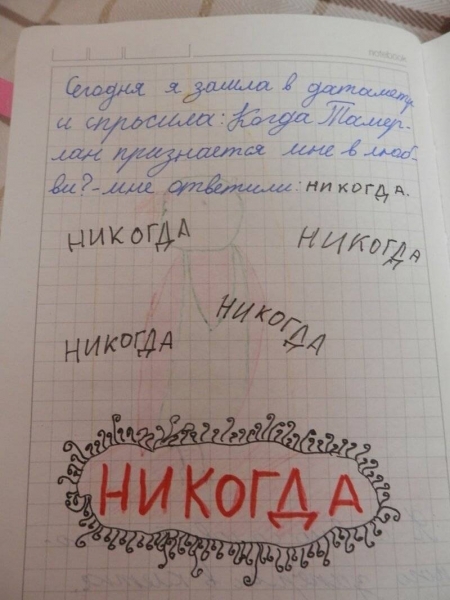 notebook
Сегодня я зашла в даталоту
и спросила: Когда Тамер-
лан признается мне в люб-
ви?-мне ответили: НИКОГДА.
НИКОГДА
НИКОГДА
НИКОГДА
НИКОГДА
НИКОГДА